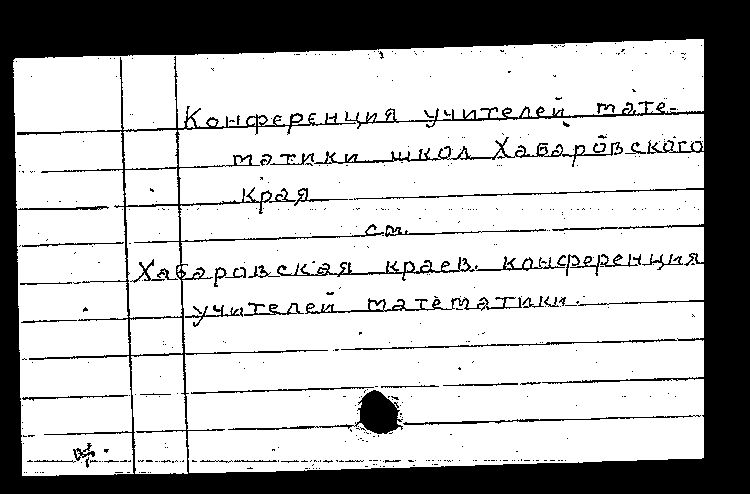 Конференция учителей мате-
матики школ Хабаровского
края
см.
Хабаровская краев. конференция
учителей математики.